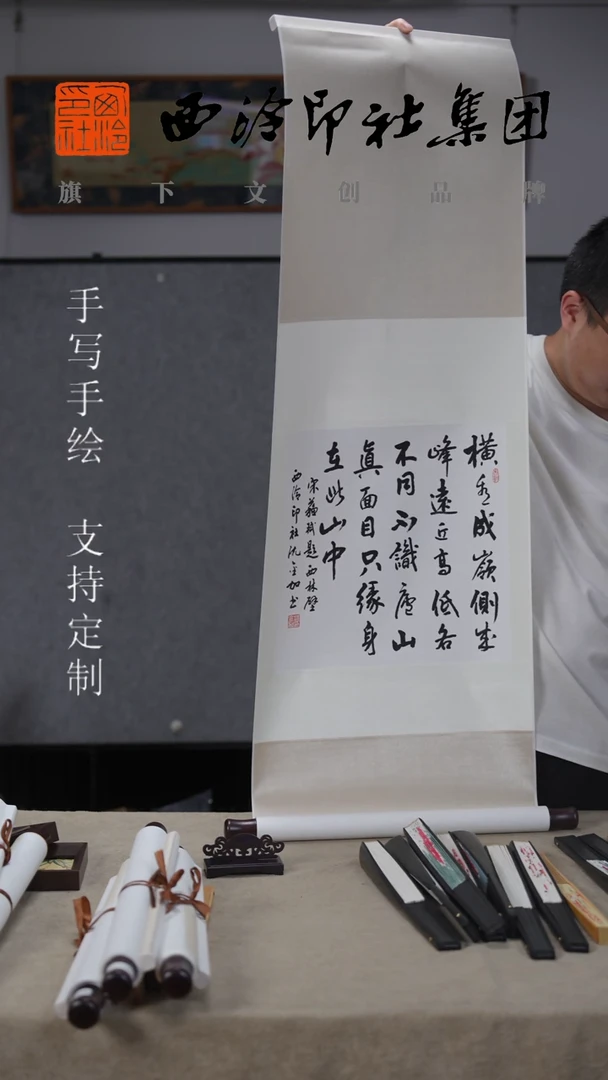 西泠
印社
西泠印社集团
旗下文创品牌
手写手绘 支持定制
横看成嶺側成
峰遠近高低各
不同不識廬山
真面目只緣身
在此山中
宋蘇軾題西林壁
西泠印社沈
书